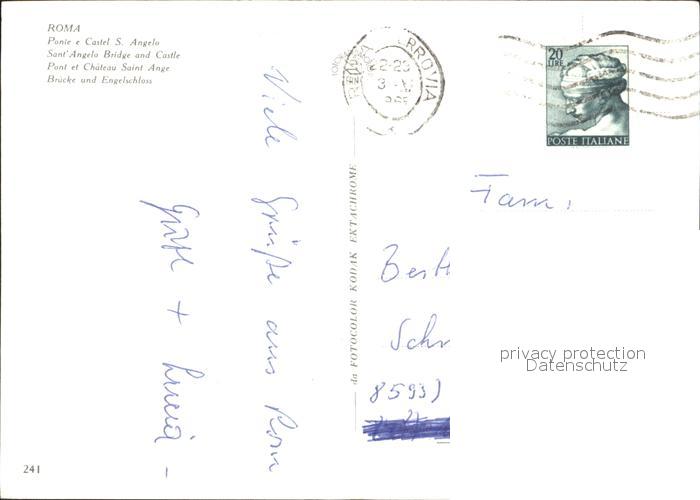 ROMA
Ponte e Castel S. Angelo
Sant'Angelo Bridge and Castle
Pont et Château Saint Ange
Brücke und Engelschloss
Viele Grüße aus Rom
+
da FOTOCOLOR KODAK EKTACHROME
ROMA FERROVIA
20
LIRE
POSTE ITALIANE
Fam.
Bert
Sch
8593)
privacy protection
Datenschutz
241